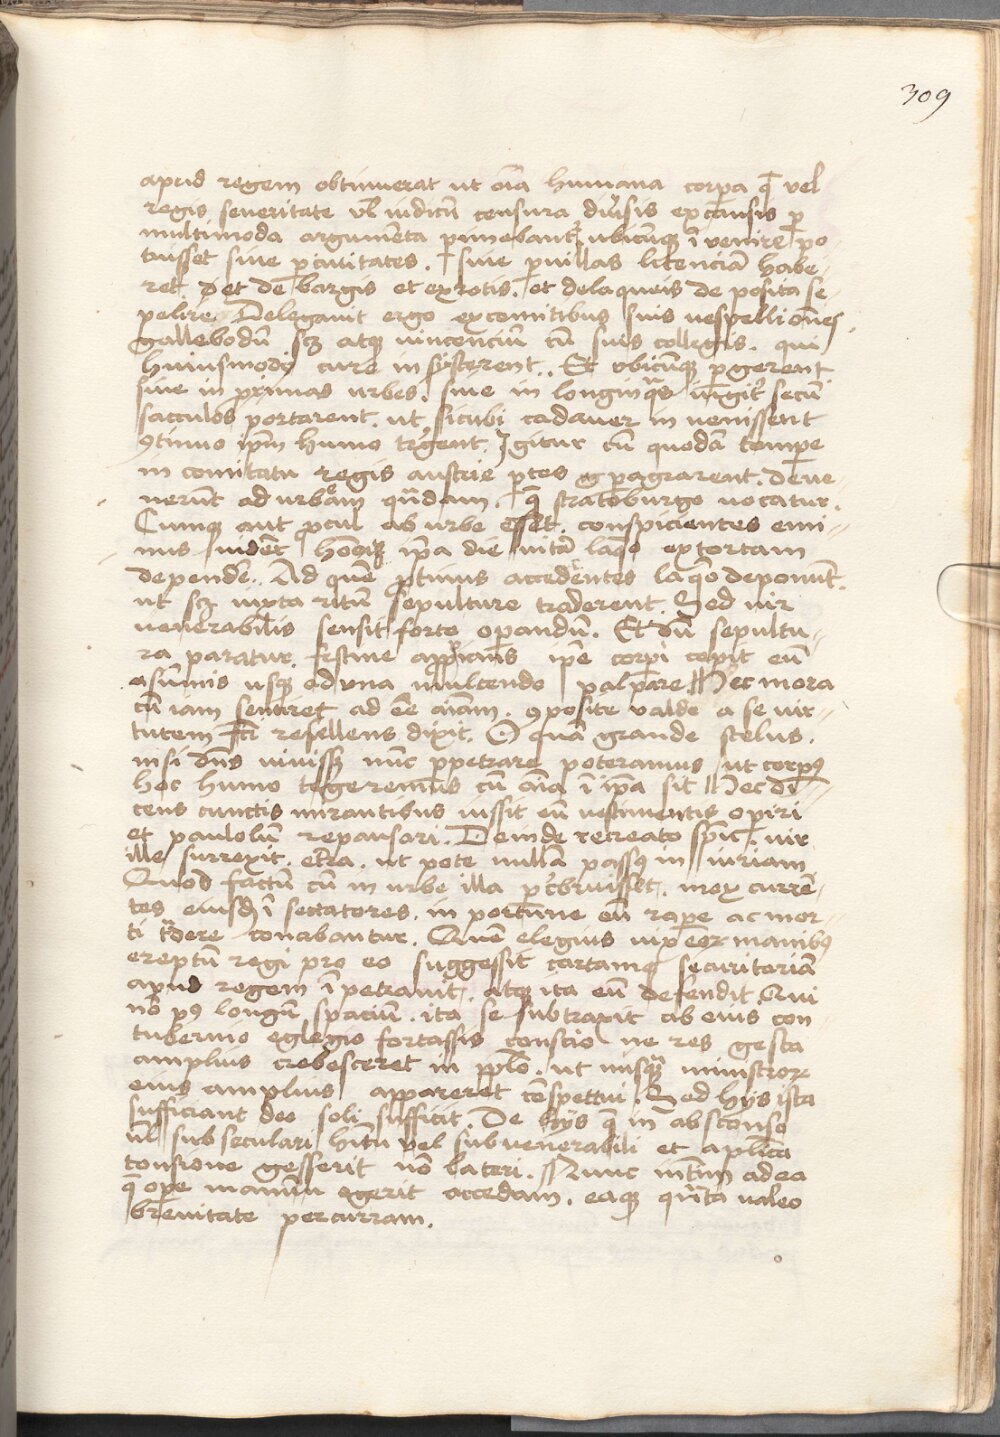 309
apud regem obtinuerat ut oīa humana corpa q̄ vel
regis seueritate vl̄ iudicū censura diu̓sis ex causis p
multimoda argumēta perimebant᷑ ubicūq ī venire po
tuisset siue p ciuitates . siue p uillas licenciā habe-
ret et de bargis et ex rotis . et de laqueis de posita se-
pelire Delegauit ergo ex comitibus suis uespelliones
gallebodū scꝫ atqꝫ uincenciū cū suis collegis . qui
huiusmodi cure in sisterent . Et vbicūqꝫ pgerent
siue in pximas urbes . siue in longinqᵃs iugit̓ secū
sacculos portarent . ut sicubi cadauer in uenissent
ꝯtinuo ipm̄ humo tegerent . Igitur cū quodā tempe
in comitatu regis austrie ptes pagrarent . deue-
nerūt ad urbem quādam . q̄ stratoburgo uocatur .
Cumqꝫ aut procul ab urbe esset . conspicientes emi-
nus uidēt hoīem ipa die uitā laqo extortam
dependē . Ad quē ptinus accedentes laqo deponūt .
ut scꝫ iuxta ritū sepulture traderent . Sed uir
venerabilis sensit forte operandū . Et dū sepultu-
ra paratur festine appropians ipē corpi cepit eū
a sūmis usqꝫ ad vna mulcendo palpare Nec mora
cū iam sentiret ad ēē aīam . ꝯposite valde a se uir-
tutem fcī refellens dixit . O quā grande scelus .
nisi dn̄s iuuissꝫ nūc ppetrare poteramus ut corpus
hoc humo tegeremus cū aīa ī ipa sit Hec di-
cens cunctis mirantibus iussit eū uestimentis opiri
et paulolū repausari . Deinde recreato spū . uir
ille surrexit . ut pote nullā passus in iuriam
Quod factū cū in urbe illa pcrebruisset . mox currē-
tes eiusdē sectatores . in portune eū rape ac mor-
ti trādere conabantur . Quē elegius uix eor manibus
ereptū regi pro eo suggessit cartamqꝫ securitoriā
apud regem ī petrauit . atqꝫ ita eū defendit Qui
nō p9 longū spaciū . ita se subtraxit ab eius con
tubernio eglegio fortassis conscio ne res gesta
amplius crebesceret in pplo . ut nusquā ministror
eius amplius appareret cōspettui . Sed hijs ista
sufficiant deo soli sufficit . De hijs q̄ in absconso
vl̄ sub seculari hītu vel sub venerabili et aplica
tonsione gesserit nō lateri . Nunc intīm ad ea
q̄ ope manuū egerit accedam . eaqꝫ quāta ualeo
breuitate percurram .